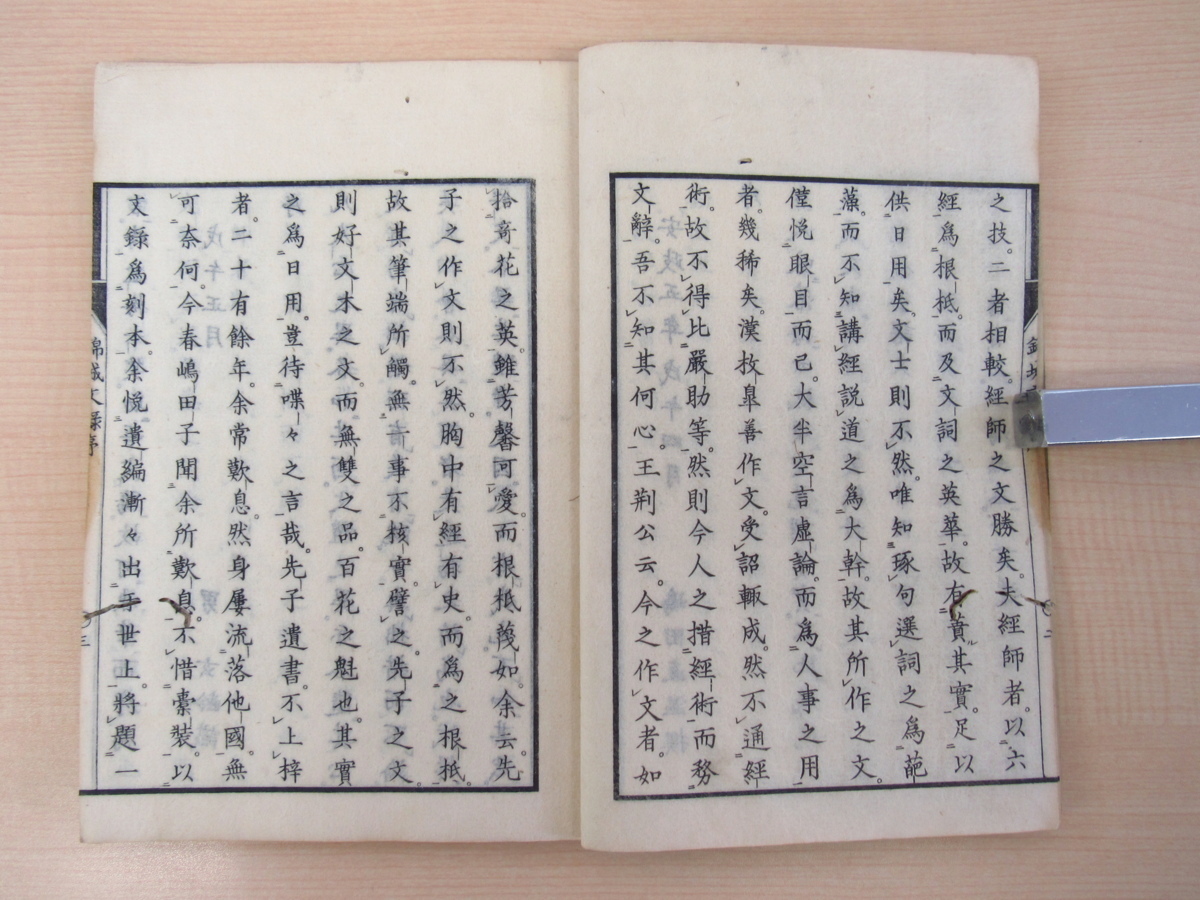 之技。二者相較。經師之文勝矣。夫經師者。以六
經爲根柢。而及文詞之英華。故有蕡其實。足以
供日用矣。文士則不然。唯知琢句選詞之爲葩
藻。而不知講經説道之爲大幹。故其所作之文。
僅悦眼目而已。大半空言虚論。而爲人事之用
者。幾稀矣。漢枚皐善作文。受詔輙成。然不通經
術。故不得比嚴助等。然則今人之措經術而務
文辭。吾不知其何心。王荆公云。今之作文者。如
拾奇花之英。雖芳馨可愛。而根柢蔑如。余云。先
子之作文則不然。胸中有經有史。而爲之根柢。
故其筆端所觸。無一事不核實。譬之。先子之文。
則好文木之文。而無雙之品。百花之魁也。其實
之爲日用。豈待喋々之言哉。先子遺書。不上梓
者。二十有餘年。余常歎息。然身屢流落他國。無
可奈何。今春嶋田子聞余所歎息。不惜橐裝。以
文錄爲刻本。余悦遺編漸々出于世上。將題一
錦城文錄序
二
三